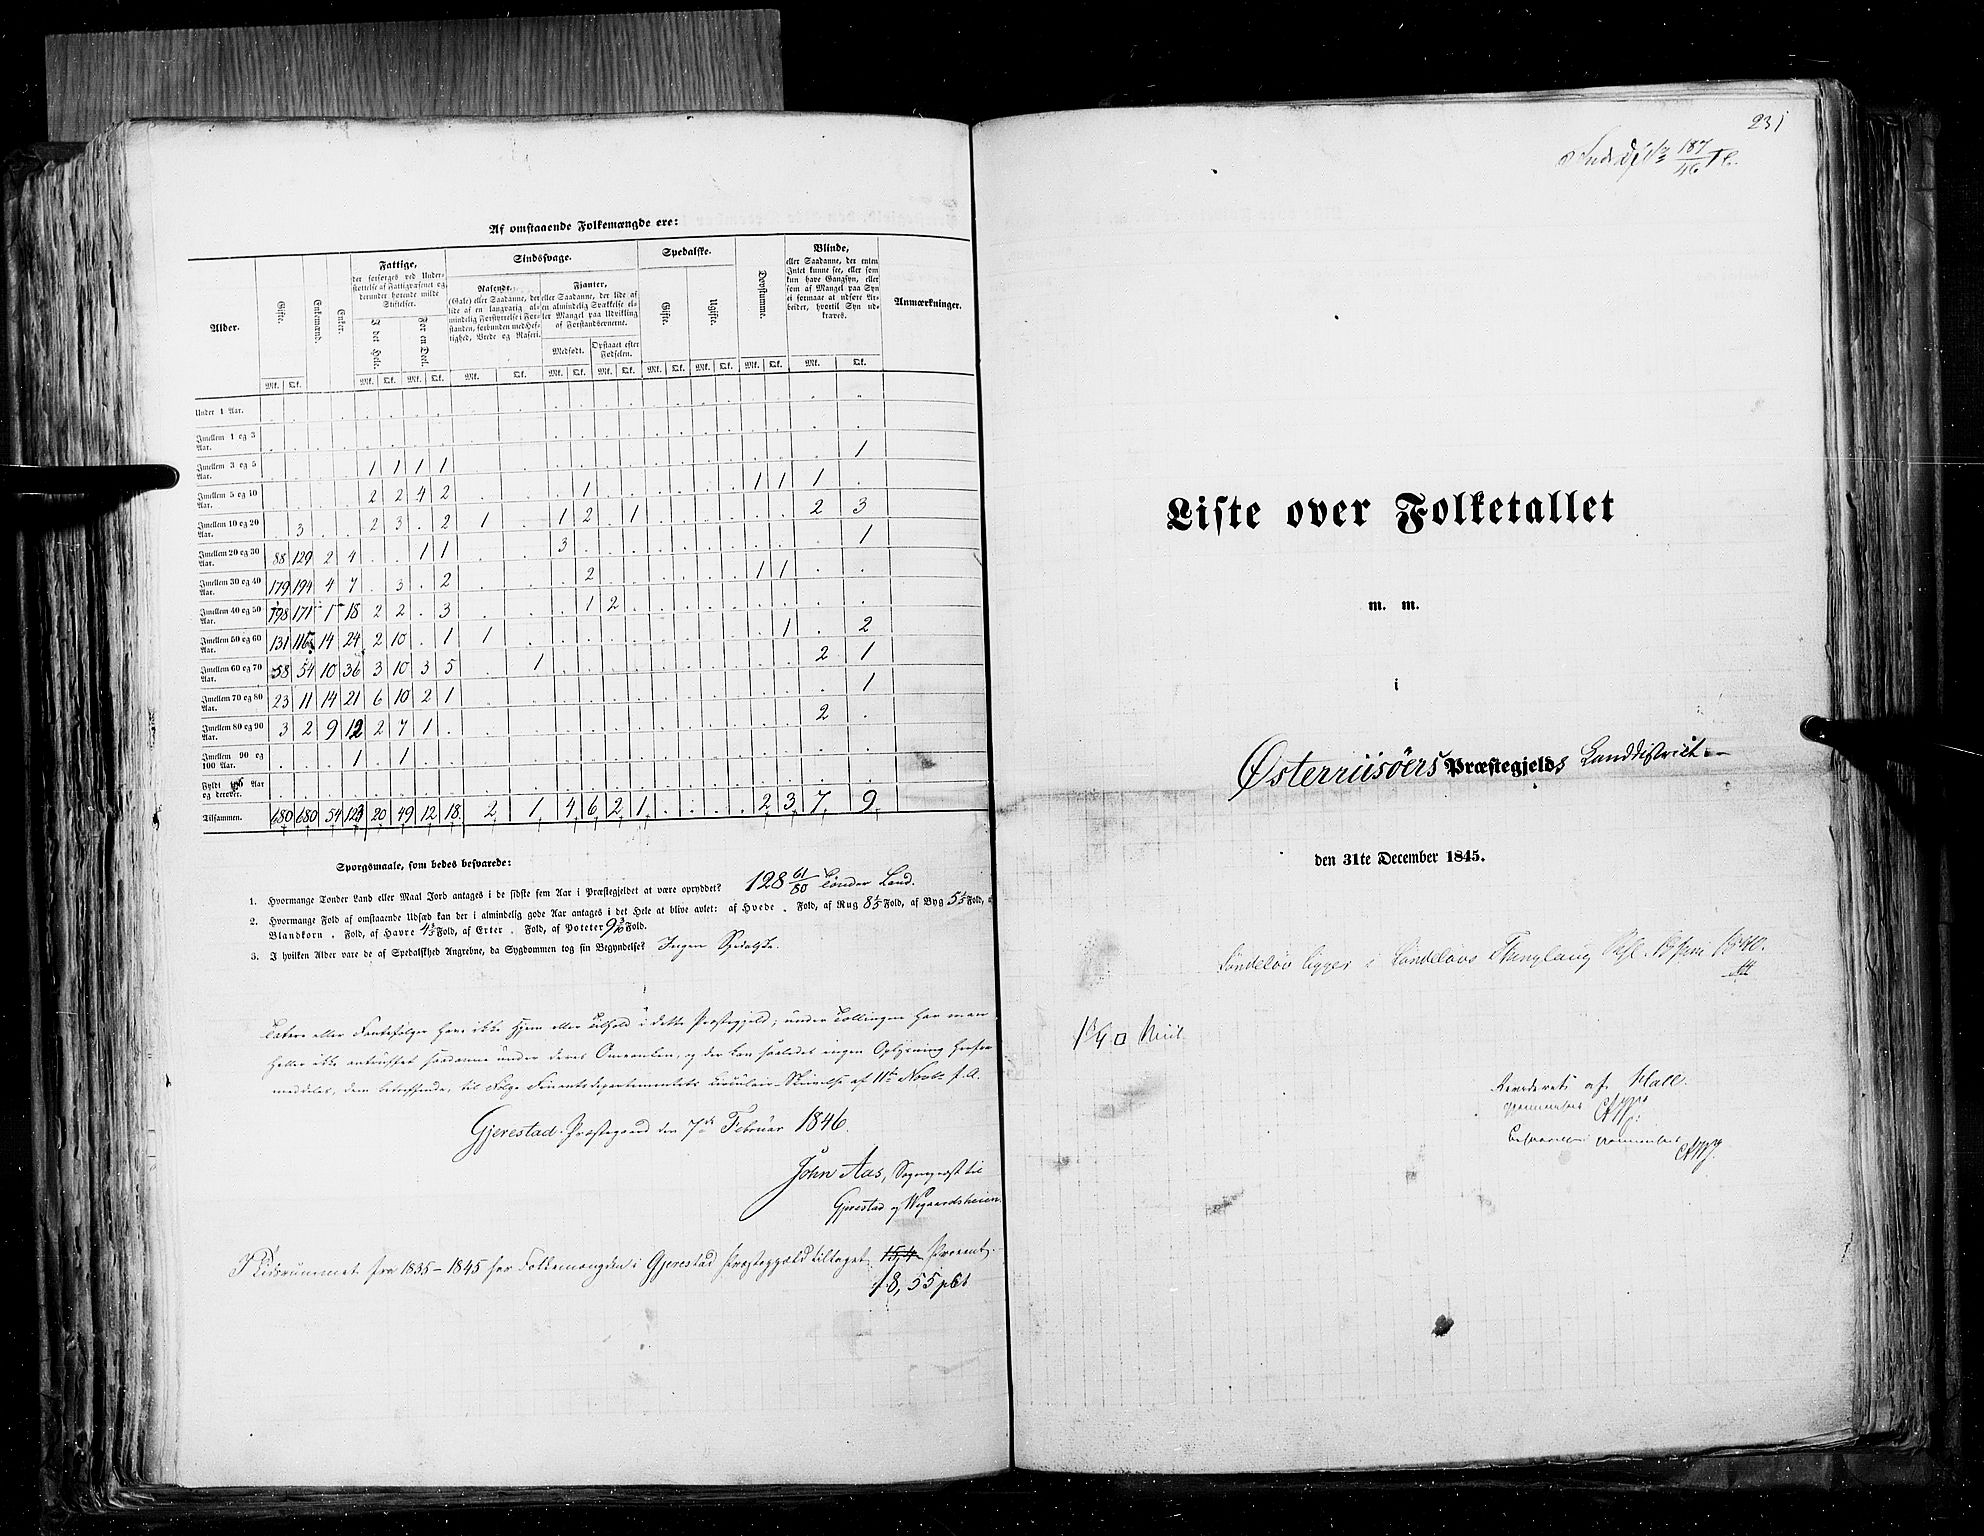 Af omstaaende Folkemængde ere:
Alder. Gifte. Enkemænd. Enker. Fattige, der forsørges ved Understøttelse af Fattigvæsenet og derunder hørende milde Stiftelser. Sindssvage. Spedalske. Døvstumme. Blinde, eller Saadanne, der enten Intet kunne see, eller som kun have Gangsyn, eller som af Mangel paa Syn ei formaae at udføre Arbeider, hvortil Syn udkræves. Anmærkninger.
I det Hele. For en Deel. Rasende (Gale) eller Saadanne, der lide af en langvarig almindelig Forstyrrelse i Forstanden, forbunden med Heftighed, Vrede og Raseri. Fjanter, eller Saadanne, der lide af en almindelig Svækkelse eller Mangel paa Udvikling af Forstandsevnerne. Gifte. Ugifte.
Medfødt. Opstaaet efter Fødselen.
Mk. Qk. Mk. Qk. Mk. Qk. Mk. Qk. Mk. Qk. Mk. Qk. Mk. Qk. Mk. Qk. Mk. Qk. Mk. Qk.
Under 1 Aar.
Imellem 1 og 3 Aar.
Imellem 3 og 5 Aar. 1 1 1 1 1
Imellem 5 og 10 Aar. 2 2 4 2 1 1 1 1
Imellem 10 og 20 Aar. 3 2 3 . 2 1 . 1 2 . 1 2 3
Imellem 20 og 30 Aar. 88 129 2 4 . . 1 1 3 1
Imellem 30 og 40 Aar. 179 194 4 7 . 3 . 2 2 1 1
Imellem 40 og 50 Aar. 198 171 1 18 2 2 . 3 1 2
Imellem 50 og 60 Aar. 131 116 14 24 2 10 . 1 1 1 . 2
Imellem 60 og 70 Aar. 58 54 10 36 3 10 3 5 . 1 2 1
Imellem 70 og 80 Aar. 23 11 14 21 6 10 2 1 1
Imellem 80 og 90 Aar. 3 2 9 12 2 7 1 2
Imellem 90 og 100 Aar. 1 . 1
Fyldt Aar og derover.
Tilsammen. 680 680 54 123 20 49 12 18 2 1 4 6 2 1 . . . . 2 3 7 9
Spørgsmaale, som bedes besvarede:
1. Hvormange Tønder Land eller Maal Jord antages i de sidste fem Aar i Præstegjeldet at være opryddet? 128 61/80 Tønder Land.
2. Hvormange Fold af omstaaende Udsæd kan der i almindelig gode Aar antages i det Hele at blive avlet: af Hvede . Fold, af Rug 8 1/5 Fold, af Byg Fold, af
Blandkorn . Fold, af Havre Fold, af Erter . Fold, af Poteter Fold.
3. I hvilken Alder vare de af Spedalskhed Angrebne, da Sygdommen tog sin Begyndelse? Ingen Spedalske.
Tatere eller Fantefølger have ikke Hjem eller Tilhold i dette Præstegjeld; under Tællingen har man
heller ikke antruffet saadanne under deres Omvanken, og der kan saaledes ingen Oplysning herom
meddeles, dem betræffende, til Følge Finantsdepartementets Circulair-Skrivelse af 11te Novbr f. A.
Gjerestad Præstegaard den 7de Februar 1846.
John Aas, Sognepræst til
Gjerestad og Wegaardsheien.
I Tidsrummet fra 1835-1845 har Folkemængden i Gjerestad Præstegjæld tiltaget 15,4 Procent.
18,55 pCt
231
187/46
Liste over Folketallet
m. m.
i
Østerriisöers Præstegjelds Landdistrict
den 31te December 1845.
Söndeløv ligger i Söndeløvs Thinglaug 1840.
Miil
Revideret af Hall.